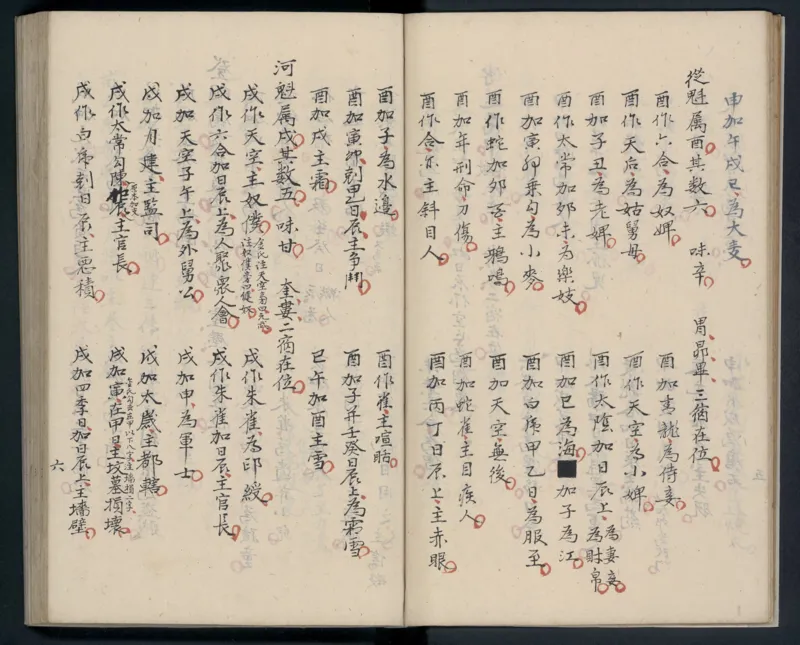 申加午戌巳為大麥
從魁属酉其數六 味辛 胃昴畢三宿在位
酉作六合為奴婢 酉加青龍為侍妾
酉作天后為姑舅母 酉作天空為小婢
酉加子丑為老婢 酉作太陰加日辰上為財帛 為妻妾
酉作太常加卯未為樂妓 酉加巳為海■加子為江
酉加寅卯乗勾為小麥 酉加白虎甲乙日為服至
酉作蛇加卯酉主鴉鳴 酉加天空無後
酉加年刑命刀傷 酉加蛇雀主目疾人
酉作合亦主斜目人 酉加丙丁日辰上主赤眼
酉加子為水邊 酉作雀主喧聒
酉加寅卯剋甲乙日辰主争鬥 酉加子并壬癸日辰上為霜雪
酉加戌主霜 巳午加酉主雪
河魁属戌其數五 味甘 奎婁二宿在位
戌作天空主奴僕 戌作朱雀為印綬
戌作六合加日辰上為人聚衆人會 戌作朱雀加日辰主官長
戌加天空子午上為外舅公 戌加申為軍士
戌加月建主監司 戌加太歲主都轄
戌作太常勾陳作辰主官長 戌加寅在甲日主坟墓損壞
戌作白虎剋日辰主悪積 戌加四季日加日辰上主墻壁
五
六